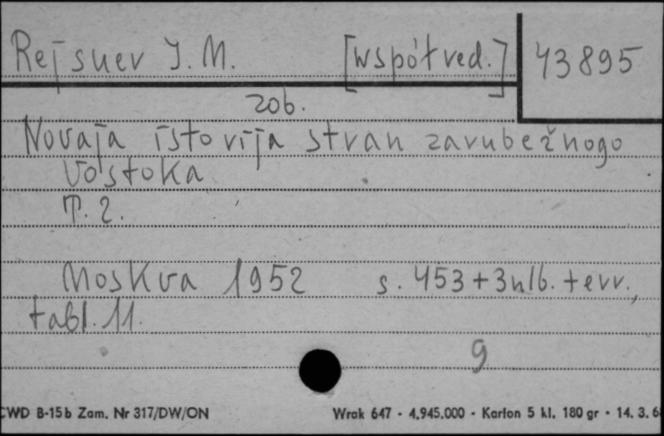 Rejsner I. M. [współred.] 43895
zob.
Novaja istorija stran zarubežnogo
Vostoka
T. 2.
Moskva 1952 s. 453+3nlb.+err.,
tabl. 11.
9
CWD B-15b Zam. Nr 317/DW/ON Wrak 647 - 4.945.000 - Karton 5 kl. 180 gr - 14. 3. 6